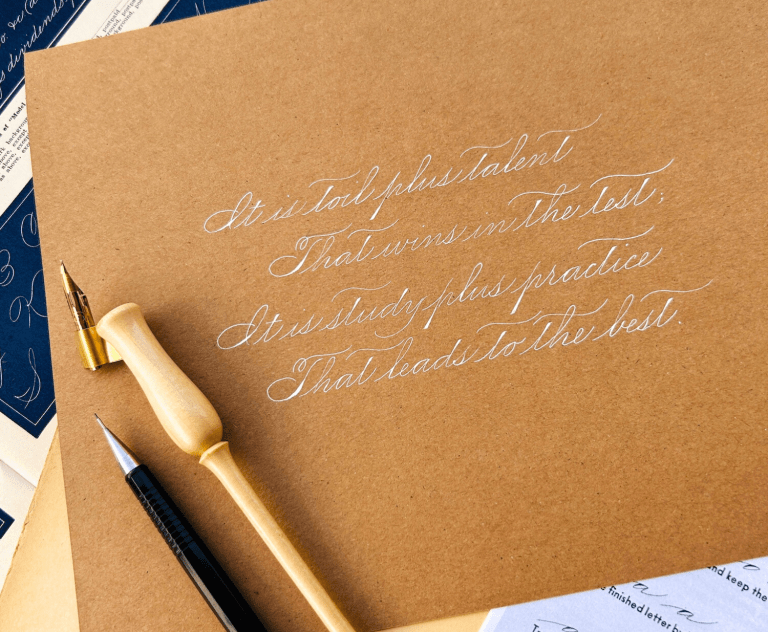 It is toil plus talent
That wins in the test;
It is study plus practice
That leads to the best.
dividends
"Model
and keep the
finished letter